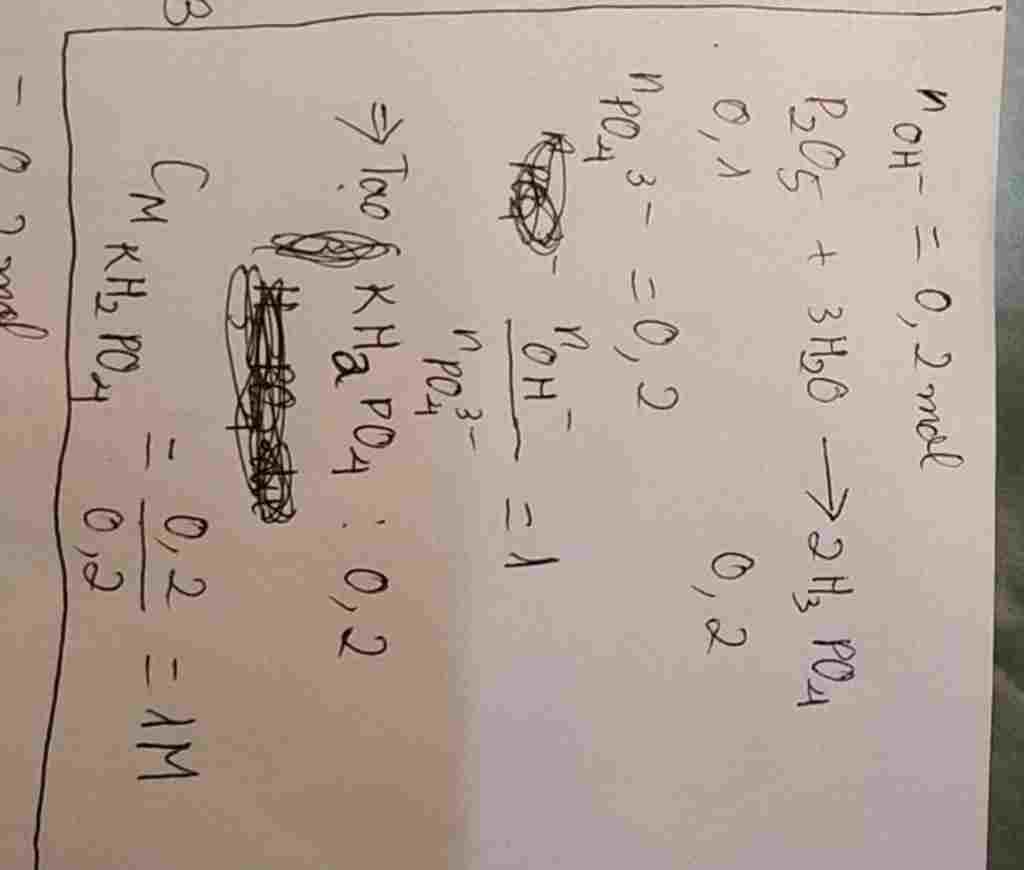 n OH⁻ = 0,2 mol
P₂O₅ + 3H₂O → 2H₃PO₄
0,1 0,2
n PO₄³⁻ = 0,2
n OH⁻ / n PO₄³⁻ = 1
⇒ Tạo KH₂PO₄ : 0,2
C_M KH₂PO₄ = 0,2 / 0,2 = 1M